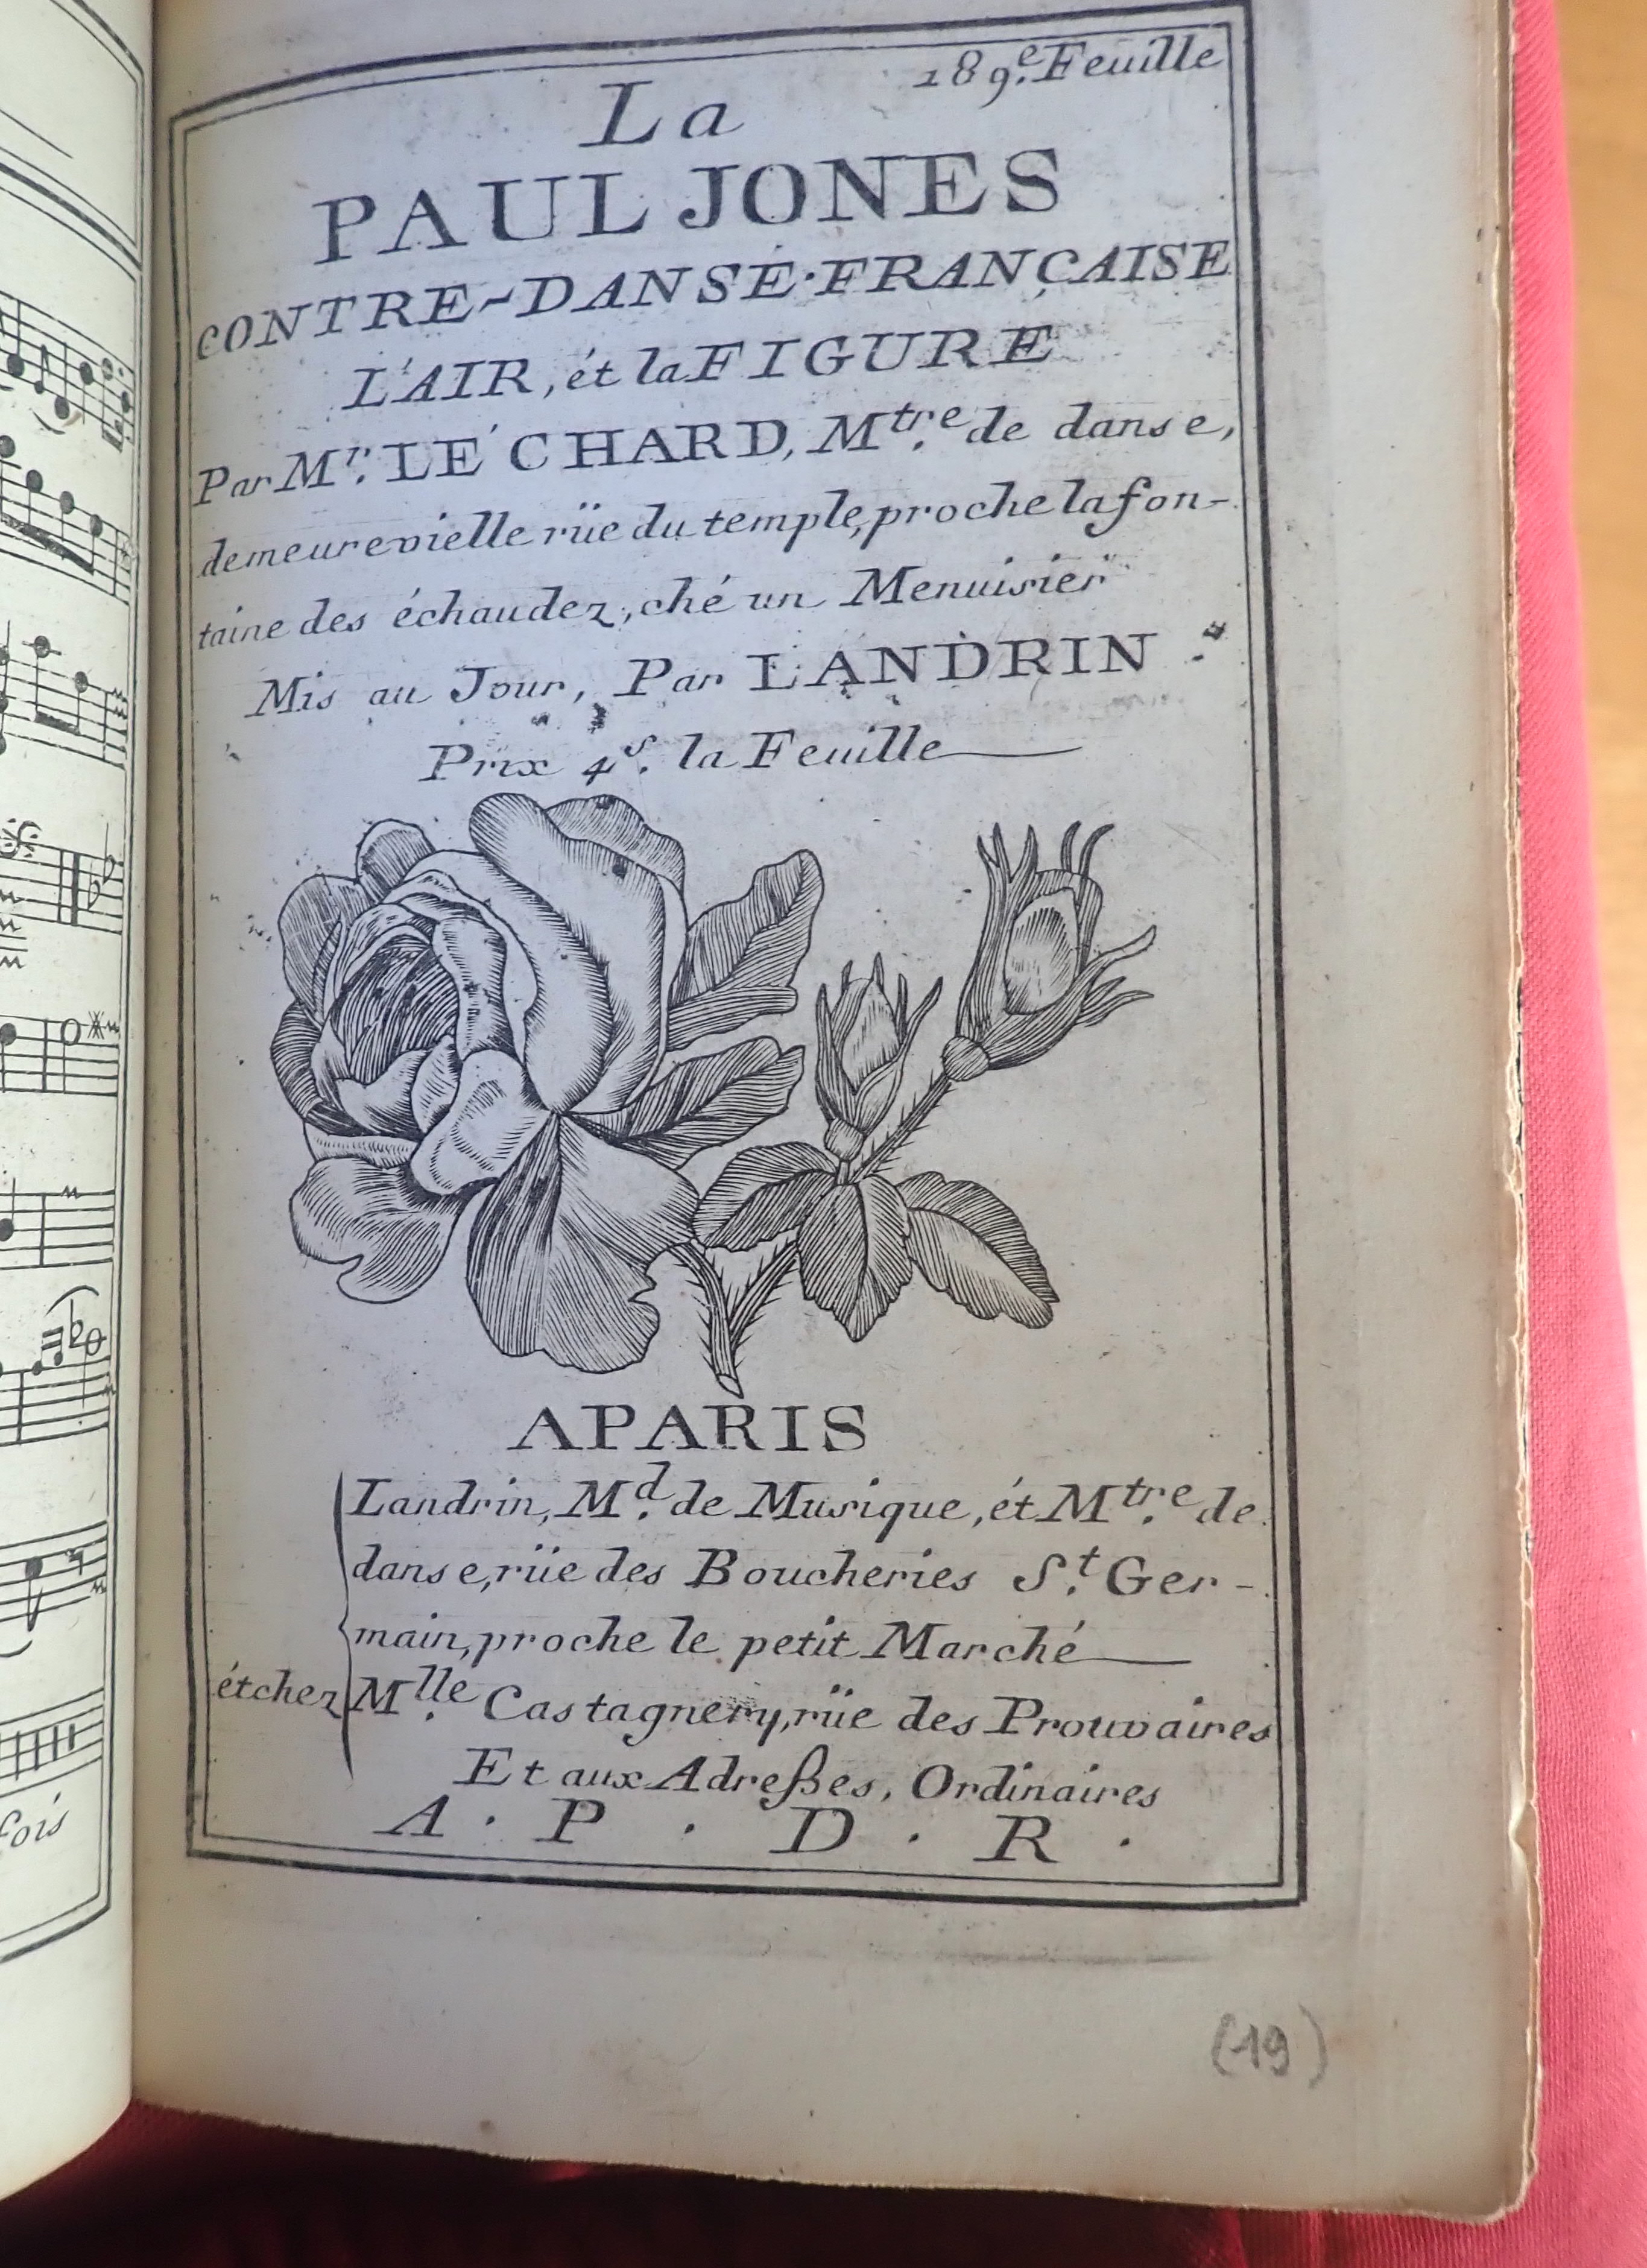 189.e Feuille
La
PAUL JONES
CONTRE-DANSE·FRANÇAISE
L'AIR, ét la FIGURE
Par M.r LE CHARD, M.tre de danse,
demeure vielle rüe du temple, proche la fon-
taine des échaudez, ché un Menuisier
Mis au Jour, Par LANDRIN
Prix 4.s la Feuille
APARIS
Landrin, M.d de Musique, ét M.tre de
danse, rüe des Boucheries S.t Ger-
main, proche le petit Marché
ét chez M.lle Castagnery, rüe des Prouvaires
Et aux Adreßes, Ordinaires
A · P · D · R ·
(19)
fois